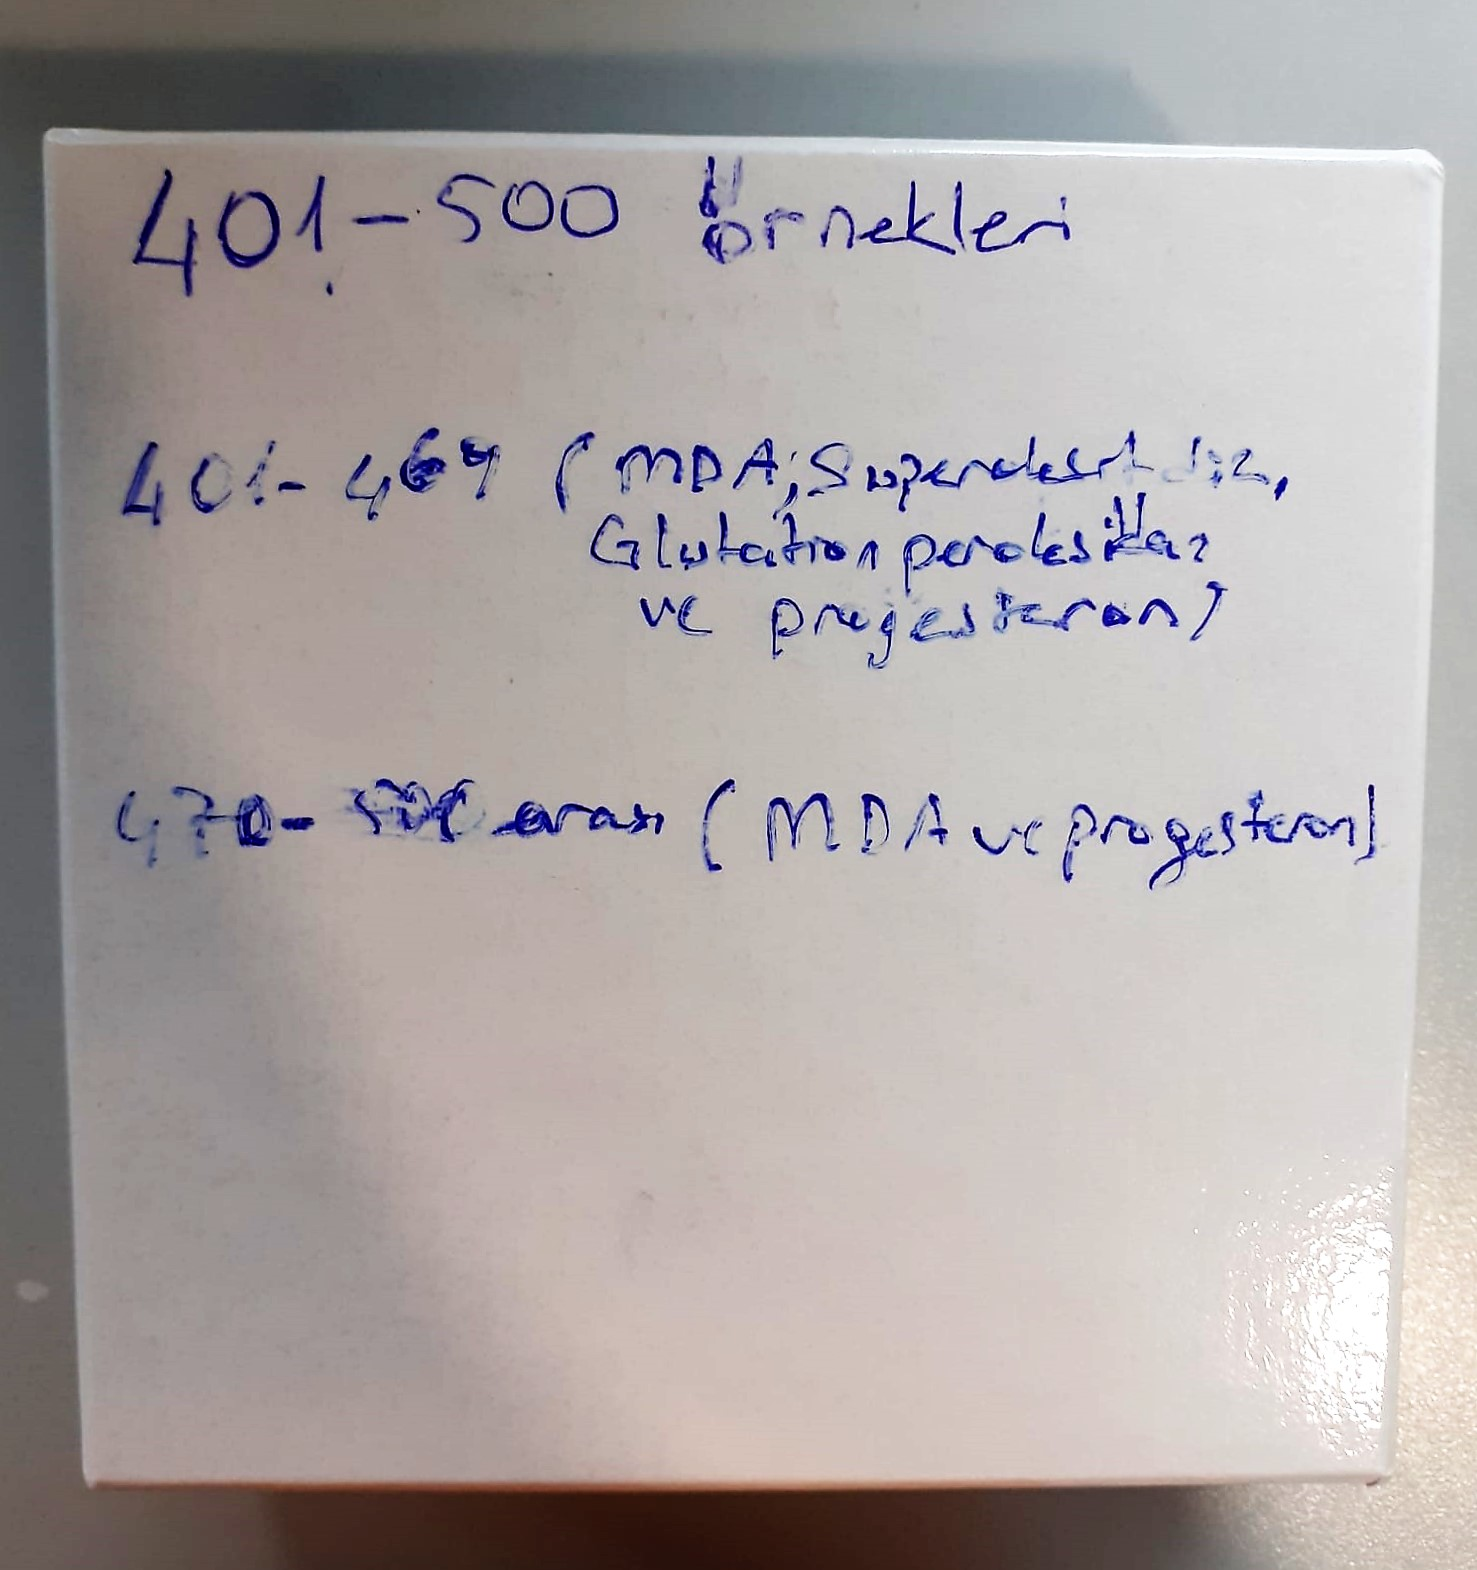 401-500 örnekleri
401-469 (MDA, Superoksit diz,
Glutatyon peroksidaz
ve progesteron)
470-500 arası (MDA ve progesteron)